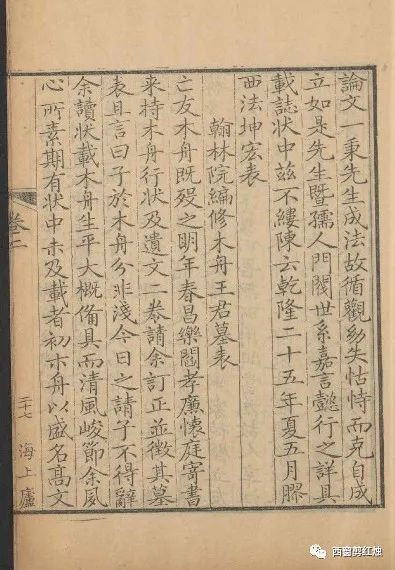 論文一秉先生成法故循觀幼失怙恃而克自成
立如是先生暨孺人門閥世系嘉言懿行之詳具
載誌狀中茲不縷陳云乾隆二十五年夏五月膠
西法坤宏表
翰林院編修木舟王君墓表
亡友木舟既歿之明年春昌樂閻孝廉懷庭寄書
来持木舟行狀及遺文二卷請余訂正並徵其墓
表且言曰子於木舟分非淺今日之請子不得辭
余讀狀載木舟生平大概備具而清風峻節余夙
心所素期有狀中未及載者初木舟以盛名高文
卷二
二十七
海上廬
西窗剪红烛